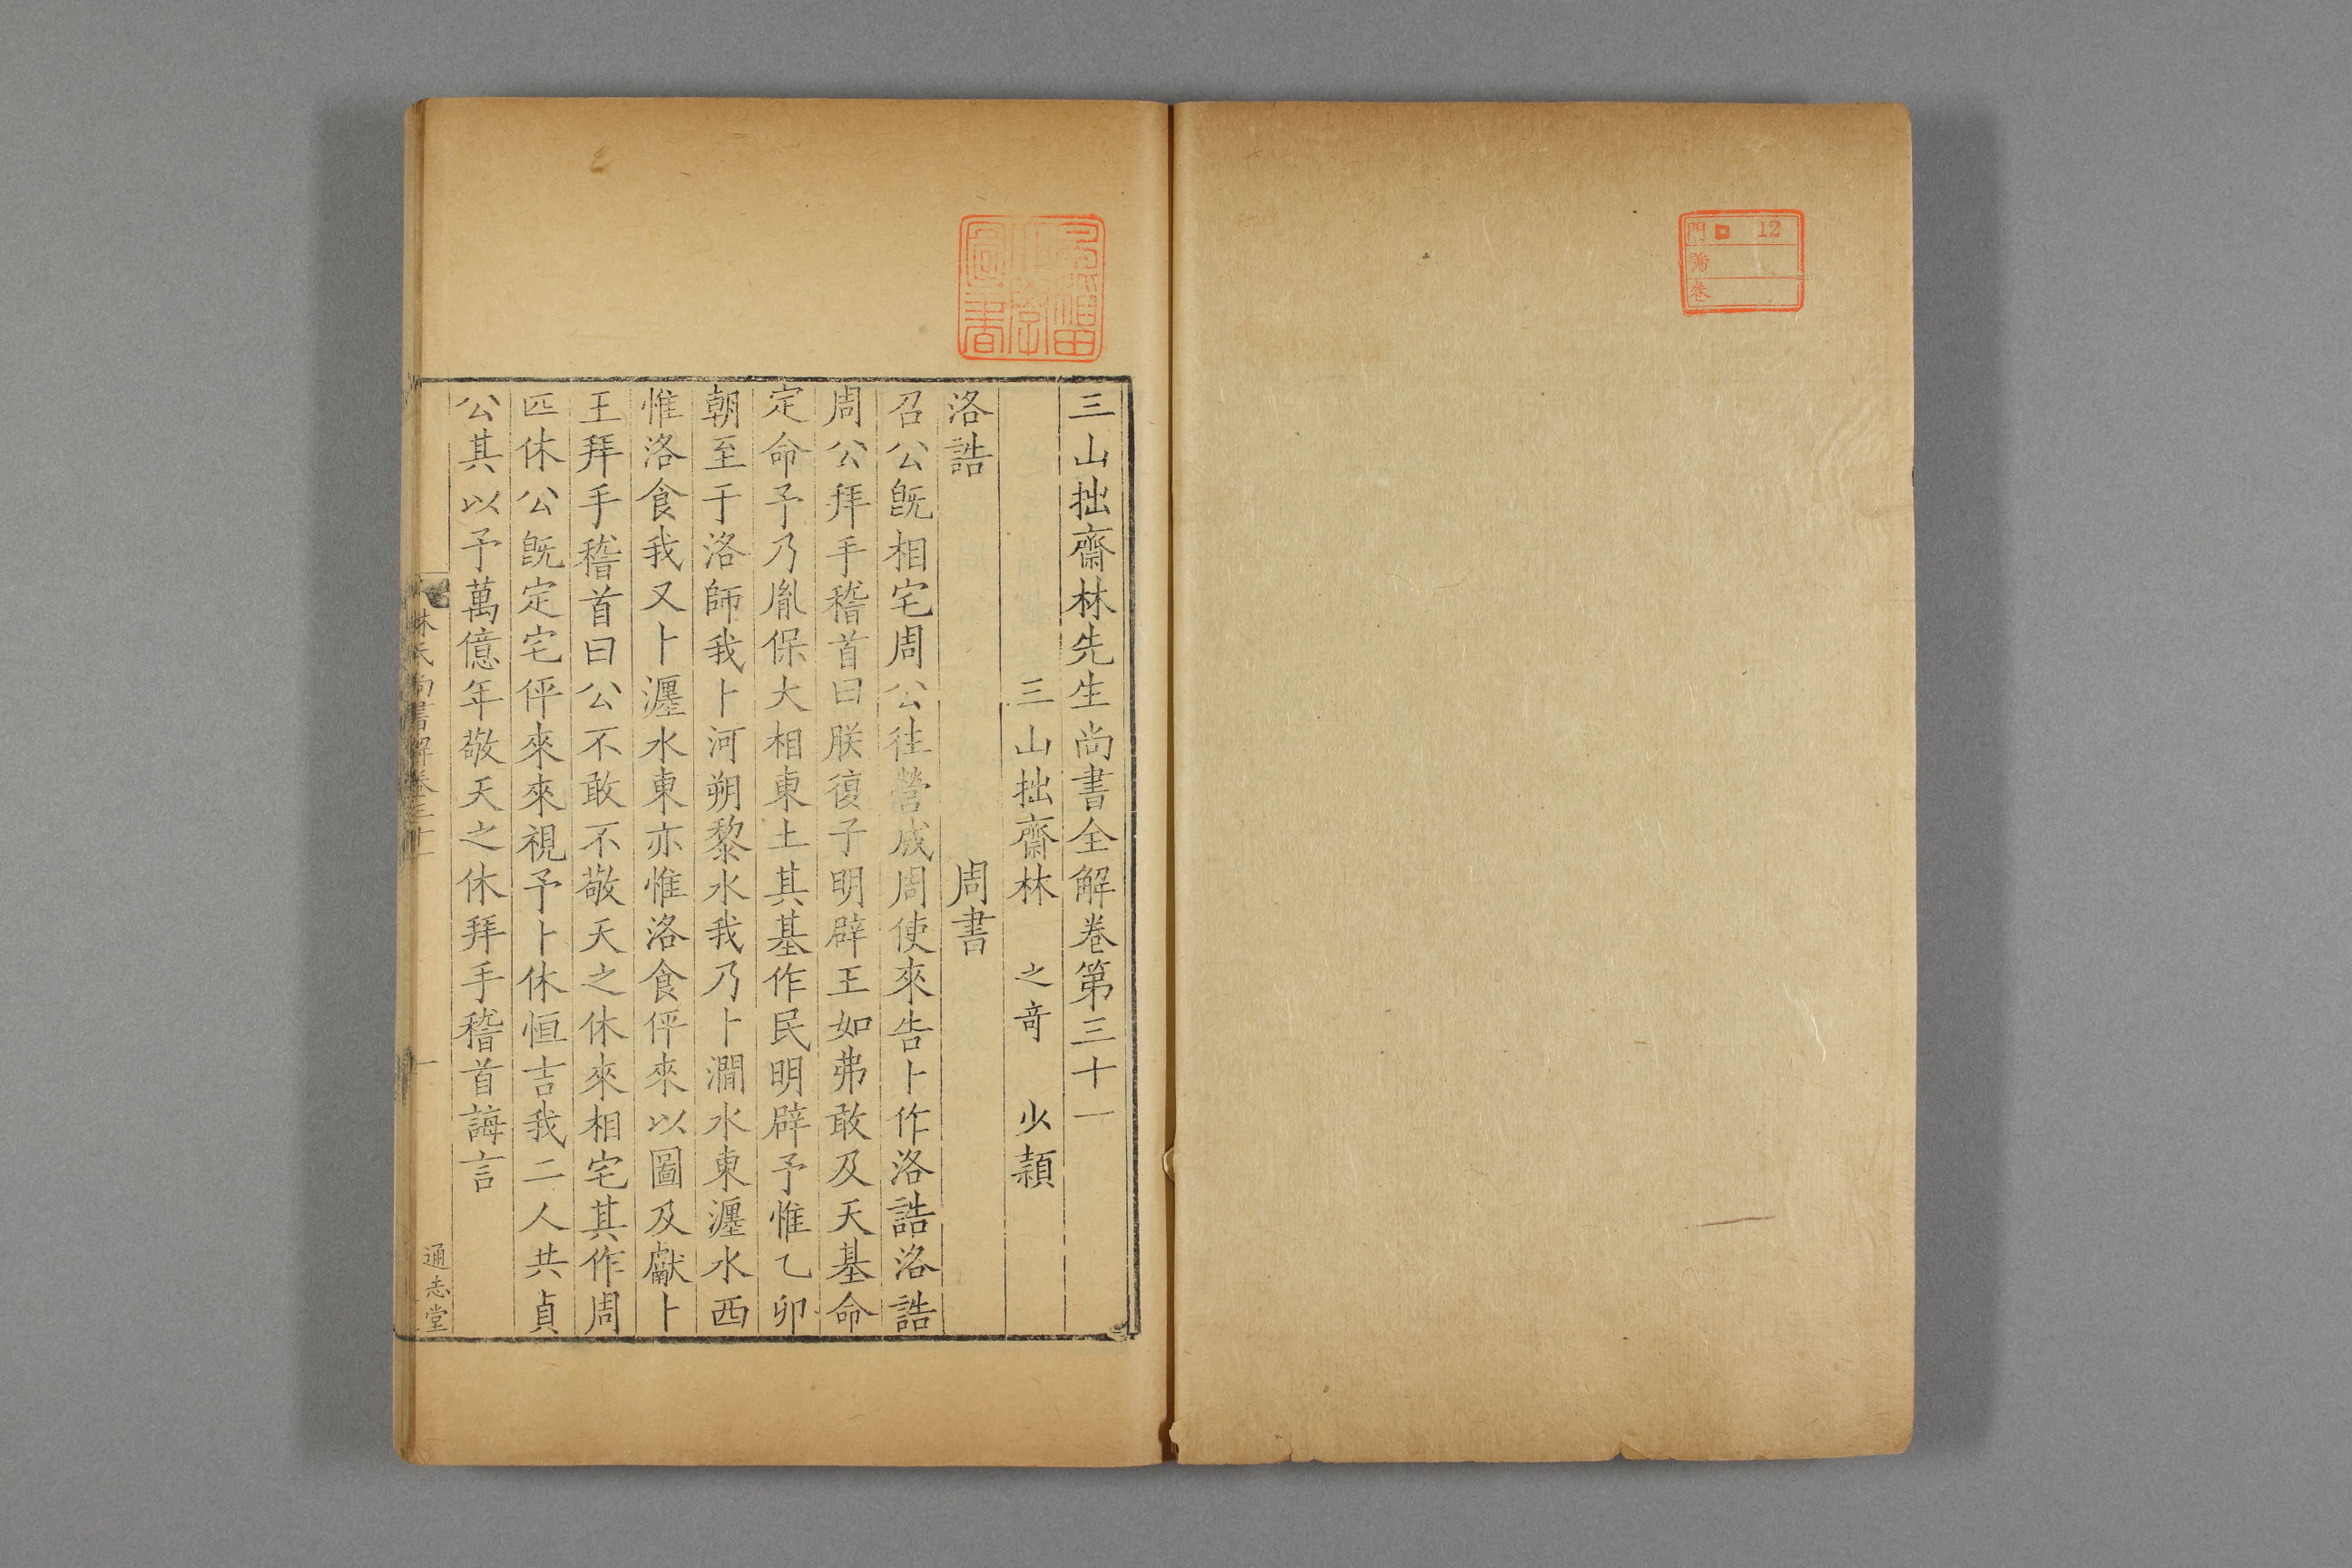 門 口 12
號
卷
早稻田
大學
圖書
三山拙齋林先生尚書全解卷第三十一
三山拙齋林 之竒 少穎
洛誥 周書
召公旣相宅周公往營成周使來告卜作洛誥洛誥
周公拜手稽首曰朕復子明辟王如弗敢及天基命
定命予乃胤保大相東土其基作民明辟予惟乙卯
朝至于洛師我卜河朔黎水我乃卜澗水東瀍水西
惟洛食我又卜瀍水東亦惟洛食伻來以圖及獻卜
王拜手稽首曰公不敢不敬天之休來相宅其作周
匹休公旣定宅伻來來視予卜休恒吉我二人共貞
公其以予萬億年敬天之休拜手稽首誨言
林氏尚書解卷三十一 一
通志堂